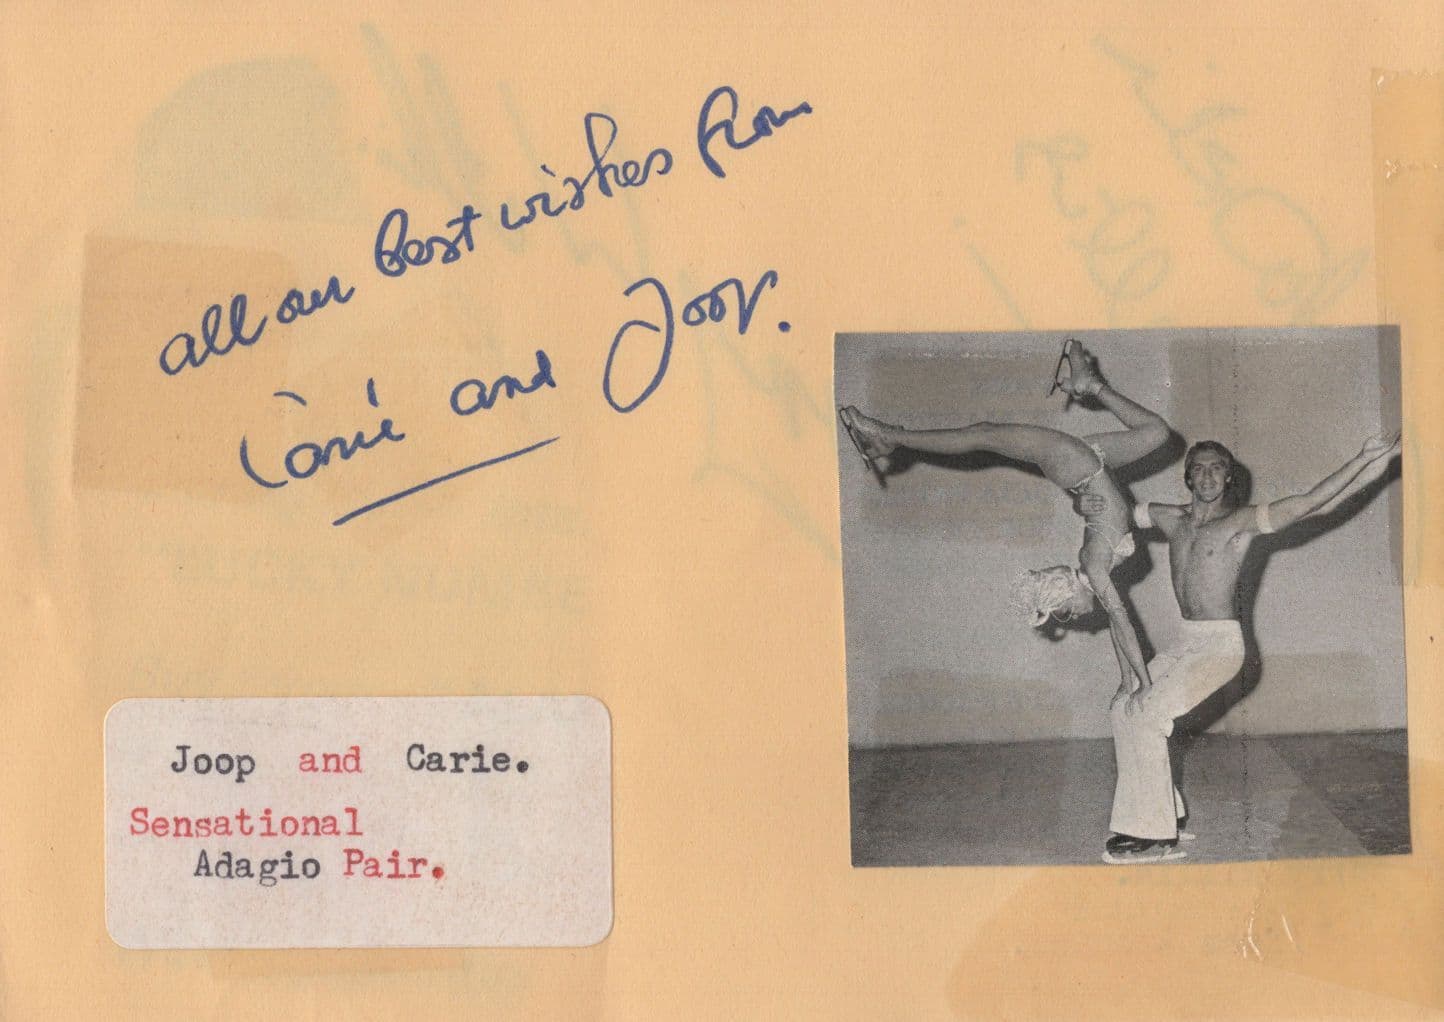 all our best wishes from
Carie and Joop.
Joop and Carie.
Sensational
Adagio Pair.